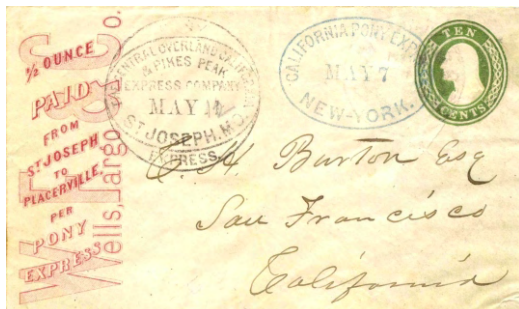 ½ OUNCE
PAID
FROM
ST JOSEPH
TO
PLACERVILLE.
PER
PONY
EXPRESS
Wells, Fargo & Co.
CENTRAL OVERLAND CALIFORNIA
& PIKES PEAK
EXPRESS COMPANY
MAY
ST JOSEPH, MO.
EXPRESS
CALIFORNIA PONY EXPRESS
MAY 7
NEW-YORK.
TEN
CENTS
H. Burton Esq
San Francisco
California